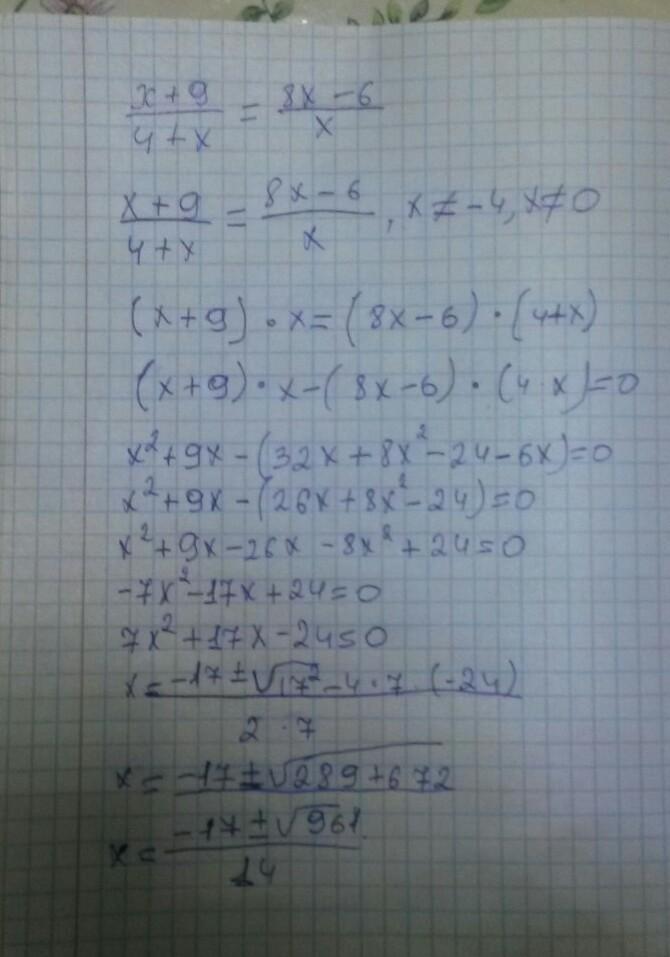 x+9/4+x = 8x-6/x
x+9/4+x = 8x-6/x, x≠-4, x≠0
(x+9)·x=(8x-6)·(4+x)
(x+9)·x-(8x-6)·(4 x)=0
x²+9x-(32x+8x²-24-6x)=0
x²+9x-(26x+8x²-24)=0
x²+9x-26x-8x²+24=0
-7x²-17x+24=0
7x²+17x-24=0
x=-17±√17²-4·7·(-24)/2·7
x=-17±√289+672
x=-17±√961/14